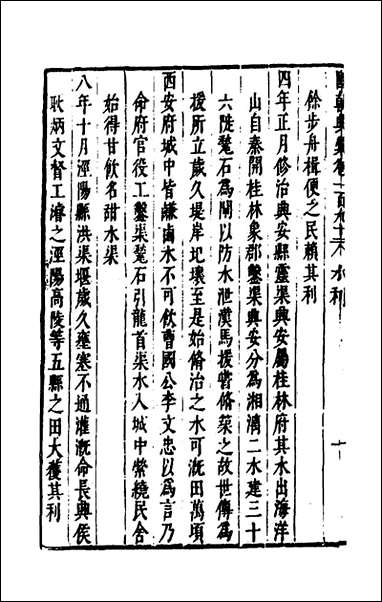 國朝典彙卷一百九十三 水利 十
餘步舟楫便之民賴其利
四年正月修治興安縣靈渠興安屬桂林府其水出海洋
山自秦開桂林象郡鑿渠興安分為湘漓二水建三十
六陡甃石為閘以防水泄漢馬援嘗脩築之故世傳為
援所立歲久堤岸圯壞至是始脩治之水可溉田萬頃
西安府城中皆鹻鹵水不可飲曹國公李文忠以為言乃
命府官役工鑿渠甃石引龍首渠水入城中縈繞民舍
始得甘飲名甜水渠
八年十月涇陽縣洪渠堰歲久壅塞不通灌溉命長興侯
耿炳文督工濬之涇陽高陵等五縣之田大獲其利